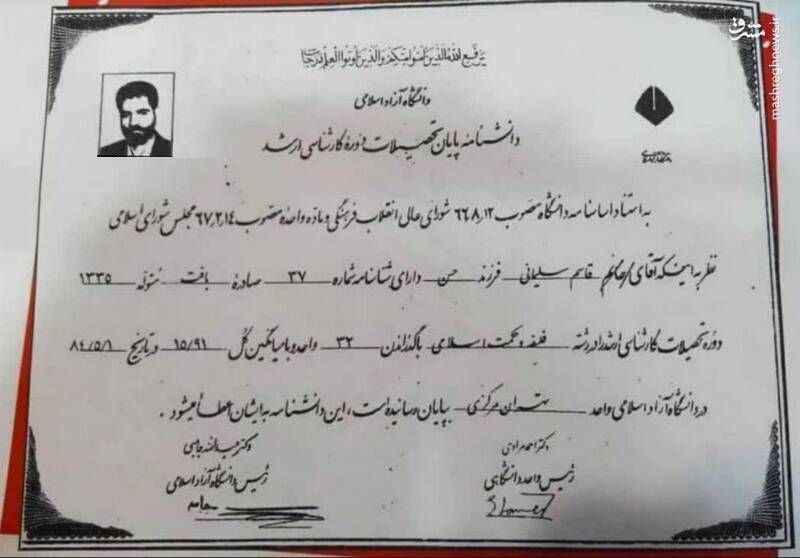 یرفع الله الذین آمنوا منکم والذین اوتوا العلم درجات
دانشگاه آزاد اسلامی
دانشنامه پایان تحصیلات دوره کارشناسی ارشد
به استناد اساسنامه دانشگاه مصوب ۶۶٫۸٫۱۲ شورای عالی انقلاب فرهنگی و ماده واحده مصوب ۶۷٫۲٫۱۴ مجلس شورای اسلامی
نظر به اینکه آقای/خانم قاسم سلیمانی فرزند حسن دارای شناسنامه شماره ۳۷ صادره بافت متولد ۱۳۳۵
دوره تحصیلات کارشناسی ارشد را در رشته فلسفه و حکمت اسلامی با گذراندن ۳۲ واحد و با میانگین کل ۱۵/۹۱ و تاریخ ۸۴/۵/۱
در دانشگاه آزاد اسلامی واحد تهران مرکزی بپایان رسانیده است، این دانشنامه به ایشان اعطا میشود.
دکتر احمد مرادی
رئیس واحد دانشگاهی
دکتر عبدالله جاسبی
رئیس دانشگاه آزاد اسلامی
مشرق
mashreghnews.ir